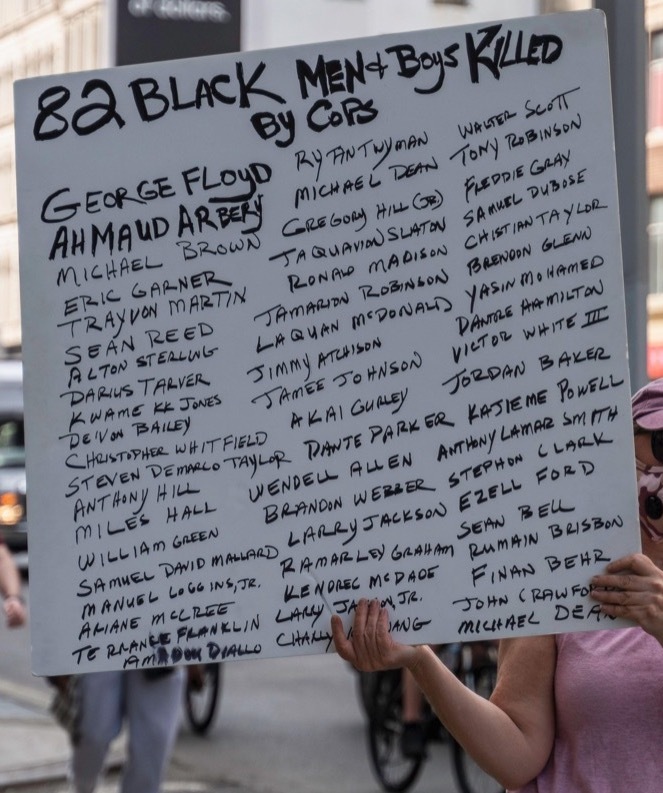 of dollars.
82 BLACK MEN & BOYS KILLED
BY COPS
GEORGE FLOYD
AHMAUD ARBERY
MICHAEL BROWN
ERIC GARNER
TRAYVON MARTIN
SEAN REED
ALTON STERLING
DARIUS TARVER
KWAME KK JONES
DE'VON BAILEY
CHRISTOPHER WHITFIELD
STEVEN DEMARCO TAYLOR
ANTHONY HILL
MILES HALL
WILLIAM GREEN
SAMUEL DAVID MALLARD
MANUEL LOGGINS, JR.
ARIANE MCCREE
TERRANCE FRANKLIN
AMADOU DIALLO
RYAN TWYMAN
MICHAEL DEAN
GREGORY HILL (JR)
JAQUAVION SLATON
RONALD MADISON
JAMARION ROBINSON
LAQUAN MCDONALD
JIMMY ATCHISON
JAMEE JOHNSON
AKAI GURLEY
DANTE PARKER
WENDELL ALLEN
BRANDON WEBBER
LARRY JACKSON
RAMARLEY GRAHAM
KENDREC MCDADE
LARRY JR.
ANG
WALTER SCOTT
TONY ROBINSON
FREDDIE GRAY
SAMUEL DUBOSE
CHISTIAN TAYLOR
BRENDON GLENN
YASIN MOHAMED
DANTRE HAMILTON
VICTOR WHITE III
JORDAN BAKER
KAJIEME POWELL
ANTHONY LAMAR SMITH
STEPHON CLARK
EZELL FORD
SEAN BELL
RUMAIN BRISBON
FINAN BEHR
JOHN CRAWFO
MICHAEL DEAN